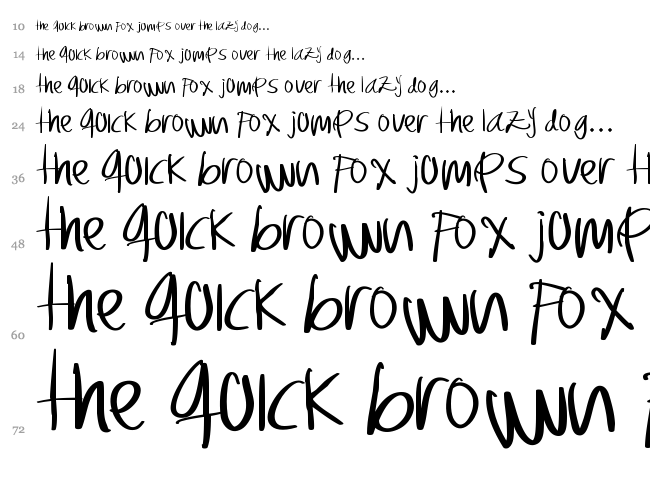 10 the quick brown fox jumps over the lazy dog...
14 the quick brown fox jumps over the lazy dog...
18 the quick brown fox jumps over the lazy dog...
24 the quick brown fox jumps over the lazy dog...
36 the quick brown fox jumps over th
48 the quick brown fox jump
60 the quick brown fox
72 the quick brown f